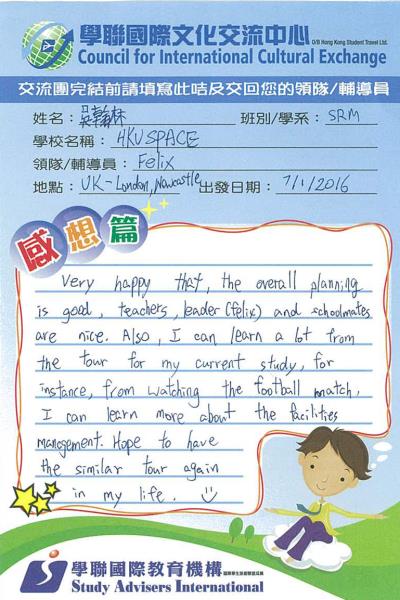 學聯國際文化交流中心 O/B Hong Kong Student Travel Ltd.
Council for International Cultural Exchange
交流團完結前請填寫此咭及交回您的領隊/輔導員
姓名：吳翰林 班別/學系：SRM
學校名稱：HKU SPACE
領隊/輔導員：Felix
地點：UK-London, Newcastle 出發日期：7/1/2016
感想篇
Very happy that, the overall planning
is good, teachers, leader (felix) and schoolmates
are nice. Also, I can learn a lot from
the tour for my current study, for
instance, from watching the football match,
I can learn more about the facilities
management. Hope to have
the similar tour again
in my life.
學聯國際教育機構
Study Advisers International